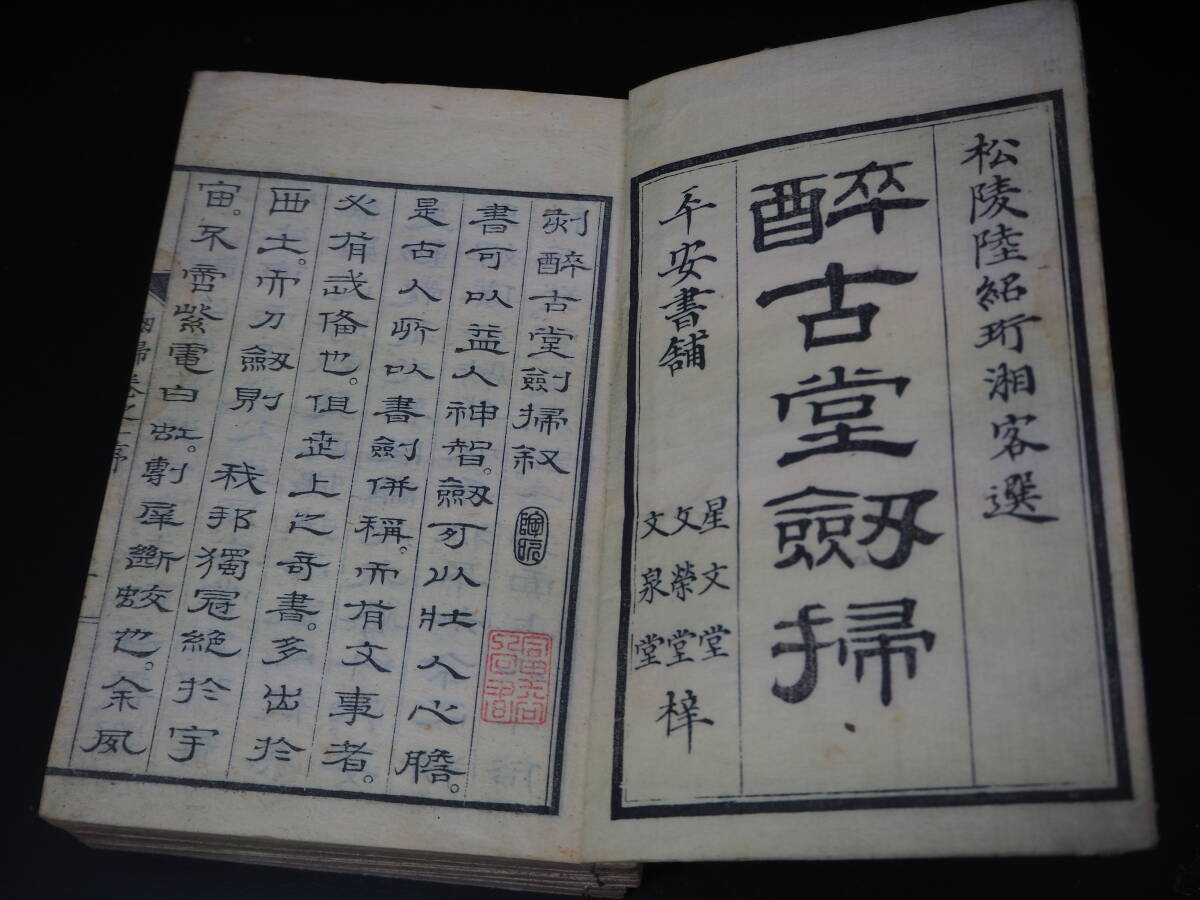 松陵陸紹珩湘客選
醉古堂劔掃
平安書舗
星文堂
文榮堂
文泉堂
梓
刻醉古堂劍掃叙
書可以益人神智。劔可以壯人心膽。
是古人所以書劍併稱。而有文事者。
必有武備也。但世上之奇書。多出於
西土。而刀劔則我邦獨冠絶於宇
宙。不啻紫電白虹。剸犀斷蛟也。余夙